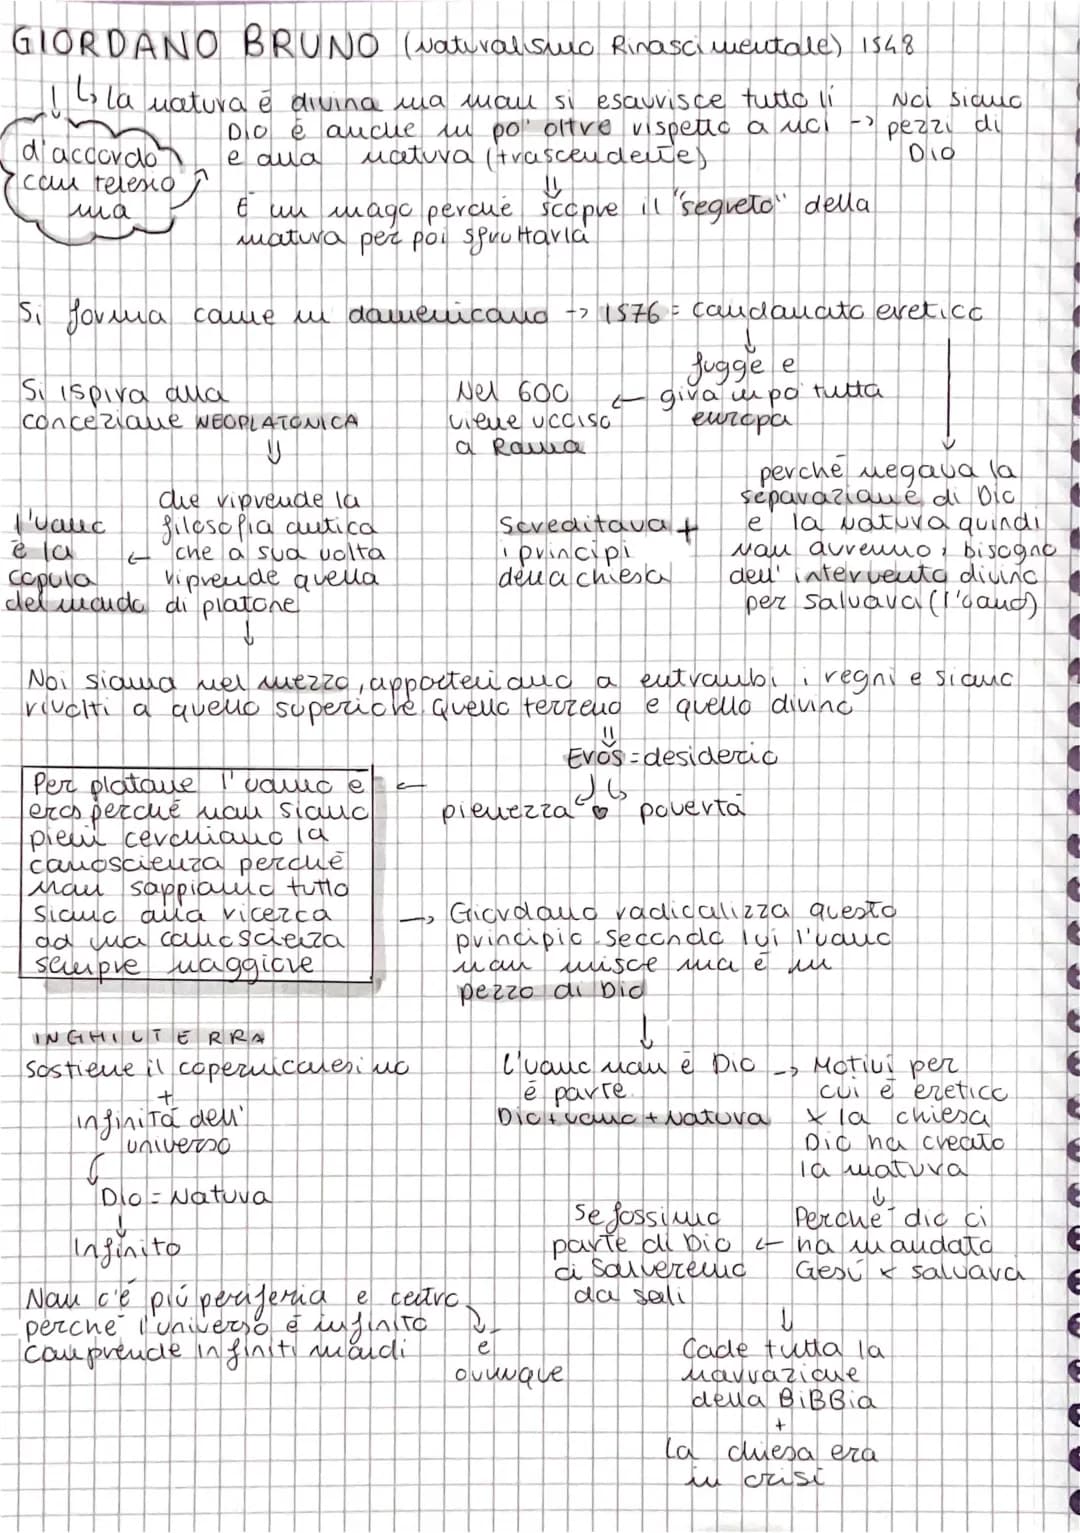 GIORDANO BRUNO (Naturalismo Rinascimentale) 1548
↳ la natura è divina ma non si esaurisce tutto lì
Dio è anche un po' oltre rispetto a noi
e alla natura (trascendente)
→ Noi siamo
pezzi di
Dio
d'accordo
con telesio
ma
È un mago perché scopre il "segreto" della
natura per poi sfruttarla
Si forma come un domenicano → 1576 = condannato eretico
fugge e
gira un po tutta
europa
Nel 600
viene ucciso
a Roma
Si ispira alla
concezione NEOPLATONICA
che riprende la
filosofia antica
che a sua volta
riprende quella
di platone
l'uomo
è la
copula
del mondo
perché negava la
separazione di Dio
e la natura quindi
non avremmo bisogno
dell'intervento divino
per salvarci (l'uomo)
Screditava +
i principi
della chiesa
Noi siamo nel mezzo, apparteniamo a entrambi i regni e siamo
rivolti a quello superiore. Quello terreno e quello divino
Eros = desiderio
pienezza povertà
Per platone l'uomo è
eros perché non siamo
pieni cerchiamo la
conoscienza perché
non sappiamo tutto
siamo alla ricerca
ad una conoscienza
sempre maggiore
→ Giordano radicalizza questo
principio. Secondo lui l'uomo
non unisce ma è un
pezzo di Dio
INGHILTERRA
Sostiene il copernicanesimo
+
infinità dell'
universo
Dio = Natura
Infinito
L'uomo non è Dio
è parte.
Dio + uomo + Natura
→ Motivi per
cui è eretico
x la chiesa
Dio ha creato
la natura
Perché dio ci
ha mandato
Gesù x salvarci
Se fossimo
parte di Dio
ci salveremo
da soli
Non c'è più periferia e centro
perché l'universo è infinito
comprende infiniti mondi
è
ovunque
Cade tutta la
narrazione
della BiBBia
+
La chiesa era
in crisi